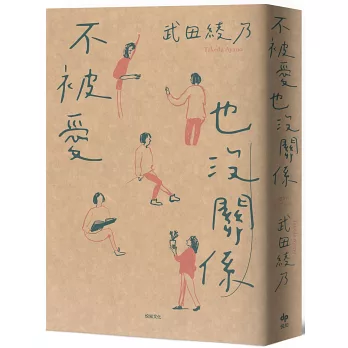 武田綾乃
Takeda Ayano
不被愛
也沒關係
悅知文化
不被愛也沒關係
武田綾乃
悅知